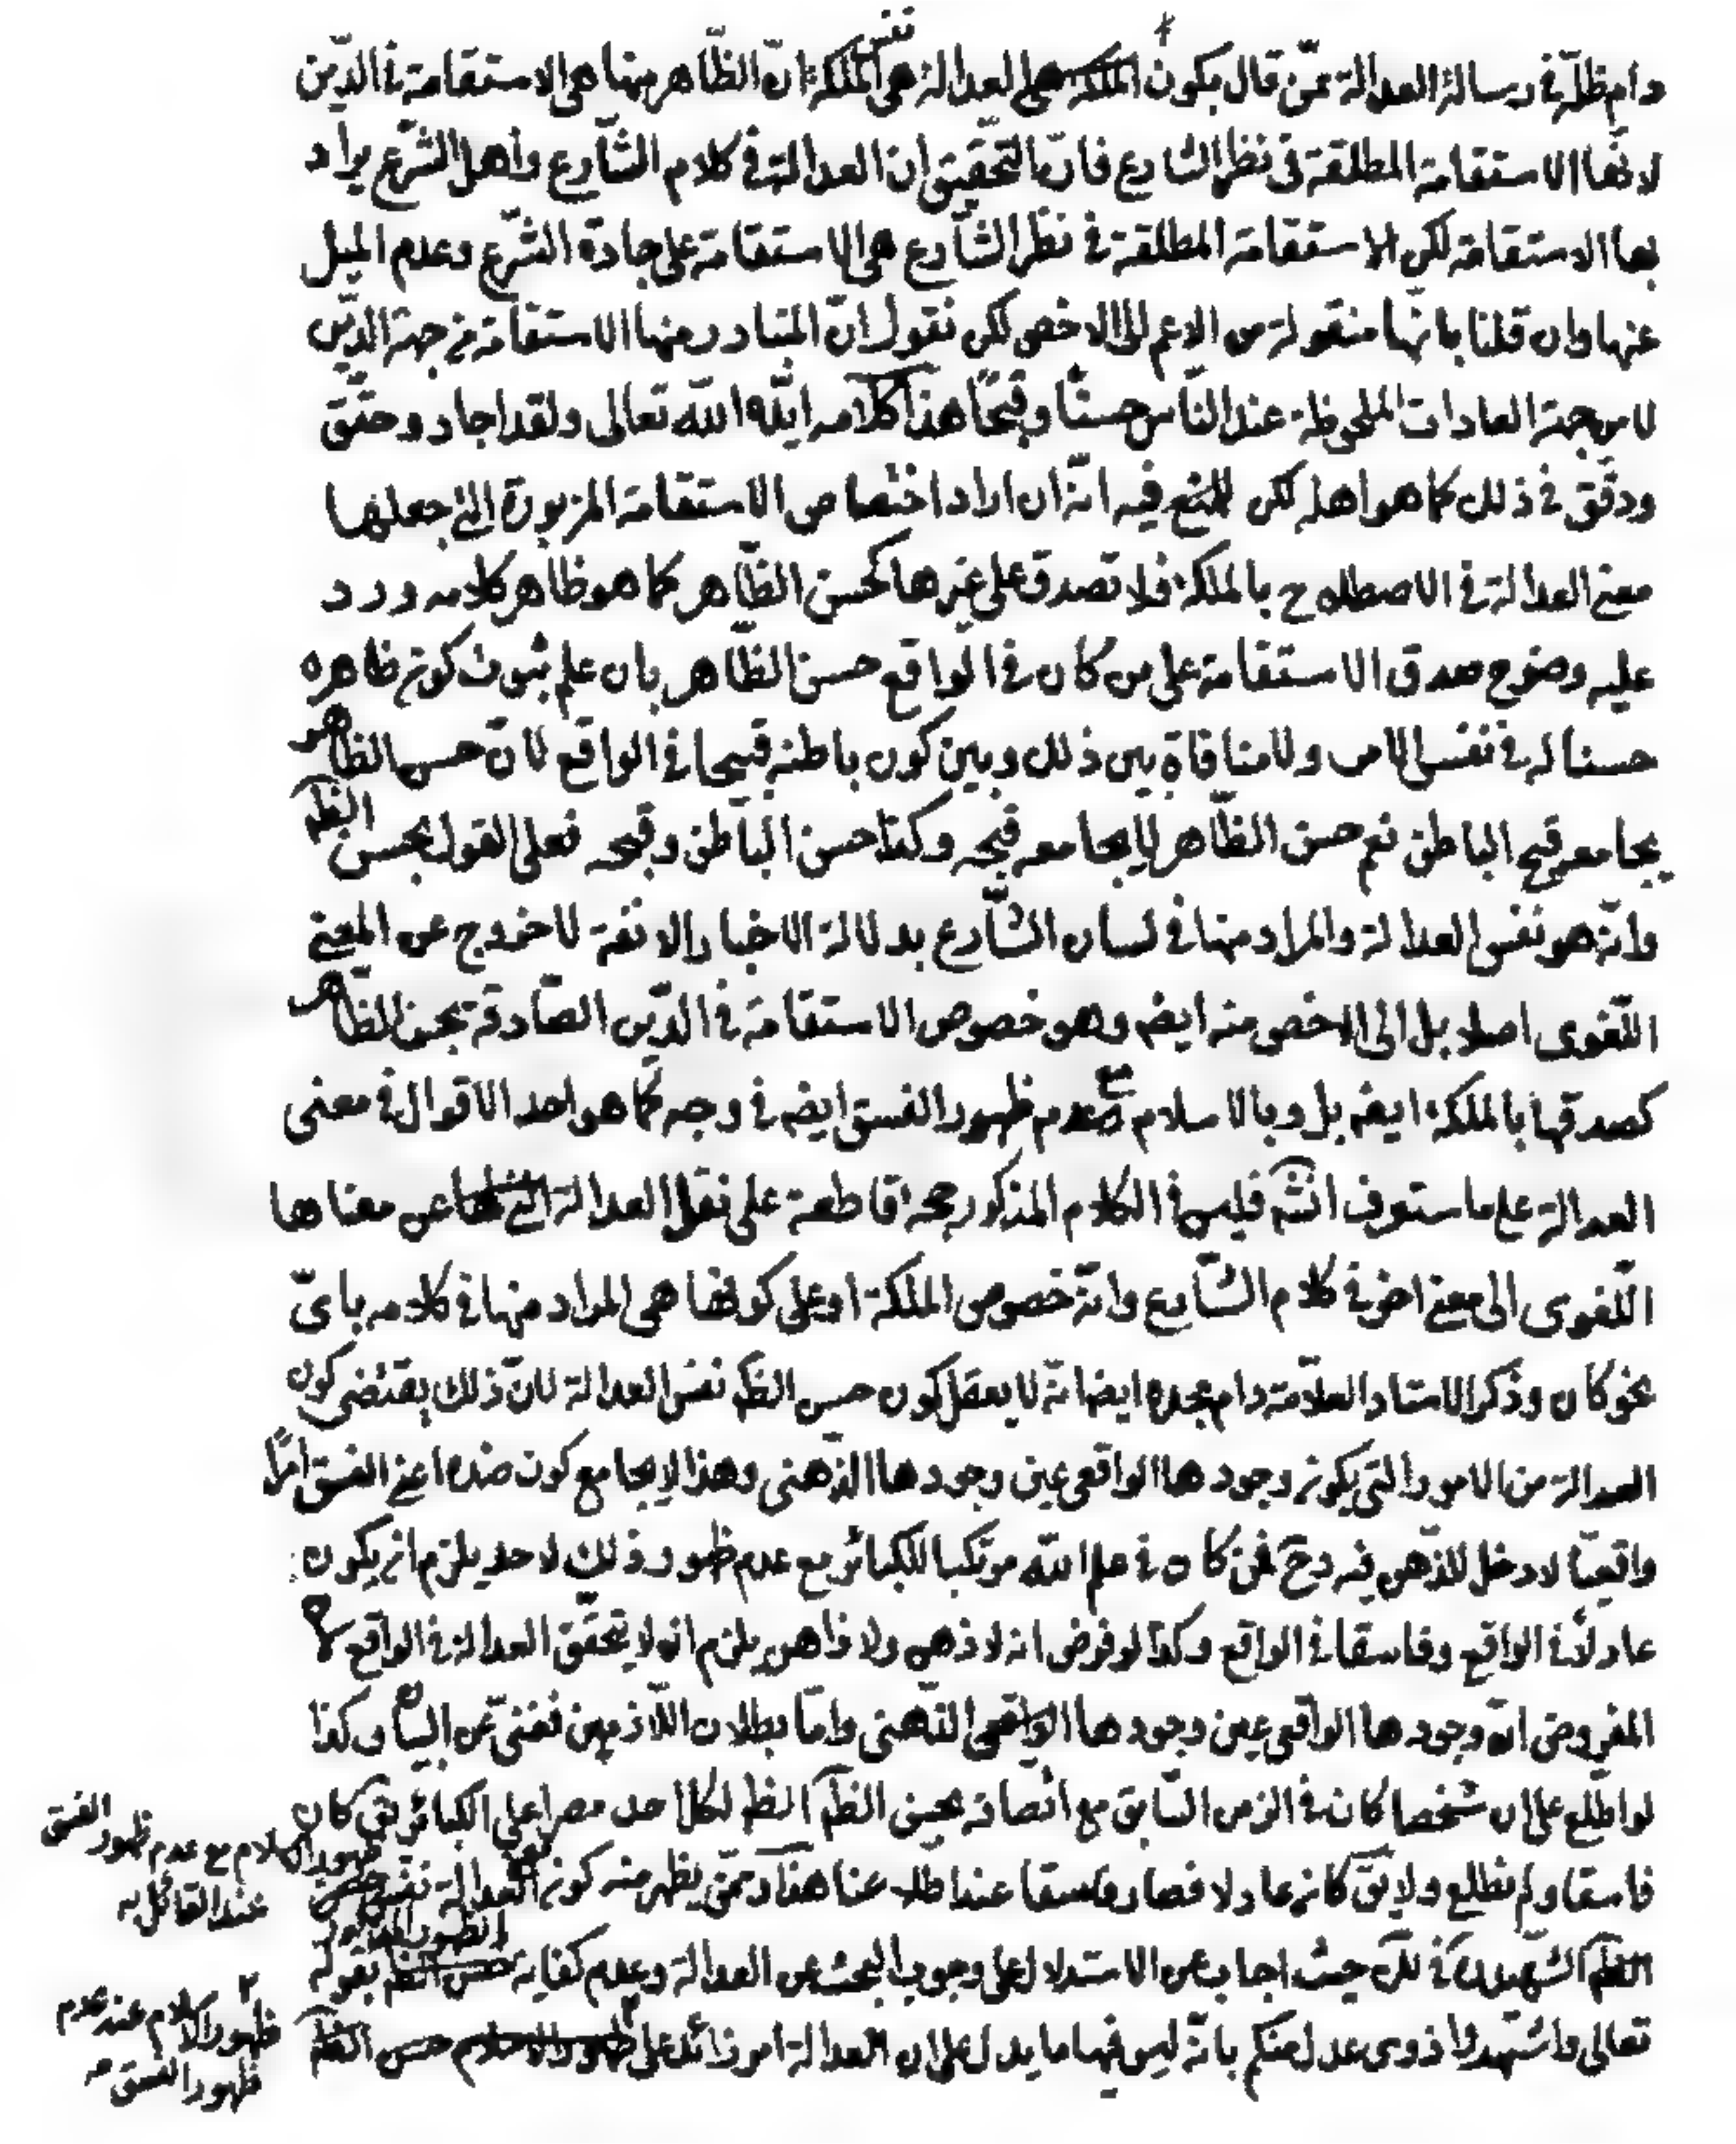 دام ظلّه في رسالة العدالة عمّن قال بكون العدالة هي نفس الملكة انّ الظّاهر منها هي الاستقامة في الدّين
لانّها الاستقامة المطلقة في نظر الشارع فانّ التّحقيق ان العدالة في كلام الشّارع وأهل الشّرع يراد
بها الاستقامة لكن الاستقامة المطلقة في نظر الشّارع هي الاستقامة على جادة الشّرع وعدم الميل
عنها وان قلنا بانّها منقولة من الاعم الى الاخص لكن نقول انّ المتبادر منها الاستقامة من جهة الدّين
لا من جهة العادات الملحوظة عند النّاس حسنًا وقبحًا هذا كلامه ايّده الله تعالى ولقد اجاد وحقّق
ودقّق في ذلك كما هو اهله لكن فيه انّه ان اراد اختصاص الاستقامة المزبورة التي جعلها
معنى العدالة في الاصطلاح بالملكة فلا تصدق على غيرها كحسن الظّاهر كما هو ظاهر كلامه ورد
عليه وضوح صدق الاستقامة على من كان في الواقع حسن الظّاهر بان علم ثبوت كون ظاهره
حسنا له في نفس الامر ولا منافاة بين ذلك وبين كون باطنه قبيحا في الواقع لانّ حسن الظاهر
يجامعه قبح الباطن نعم حسن الظّاهر لا يجامعه قبحه وكذا حسن الباطن وقبحه فعلى القول بحسن الظم
وانّه هو نفس العدالة والمراد منها في لسان الشّارع بدلالة الاخبار الاتية لا خروج عن المعنى
اللّغوى اصلا بل الى الاخص منه ايضم وهو خصوص الاستقامة في الدّين الصّادقة بحسن الظّاهر
كصدقها بالملكة ايضم بل وبالاسلام مع عدم ظهور الفسق ايضم في وجه كما هو احد الاقوال في معنى
العدالة على ما ستعرف انشم فليس في الكلام المذكور حجة قاطعة على نقل العدالة عن معناها
اللّغوى الى معنى اخر في كلام الشّارع وانّه خصوص الملكة او على كونها هي المراد منها في كلامه باىّ
نحو كان وذكر الاستاد العلّامة دام مجده ايضا انّه لا يعقل كون حسن الظم نفس العدالة لانّ ذلك يقتضى كون
العدالة من الامور التي يكون وجودها الواقعى عين وجودها الذّهنى وهذا لا يجامع كون ضده اعنى الفسق امرًا
واقعيّا لا دخل للذّهن فيه وح فمن كان في علم الله مرتكبا للكبائر مع عدم ظهور ذلك لاحد يلزم ان يكون
عادلًا في الواقع وفاسقا في الواقع وكذا لو فرض انه لا ذهن ولا ذاهن يلزم ان لا يتحقّق العدالة في الواقع لانّ
المفروض انّ وجودها الواقعى عين وجودها الذّهنى وامّا بطلان اللّازمين فغنىّ عن البيان وكذا
لو اطّلع على ان شخصا كان في الزمن السّابق مع اتّصافه بحسن الظم لكل احد مصرا على الكبائر يق كان
فاسقا ولم نطلع ولا يق كان عادلا فصار فاسقا عند اطلاعنا هذا وممّن يظهر منه كون العدالة نفس
الظم الشّهيد في حيث اجاب عن الاستدلال على وجوب البحث عن العدالة وعدم كفاية الظهور المذكور بقوله
تعالى واشهدوا ذوى عدل منكم بانّه ليس فيها ما يدل على ان العدالة امر زائد على
ظهور الاسلام مع عدم ظهور الفسق
عند القائل به
٢
ظهور الاسلام عند عدم
ظهور الفسق